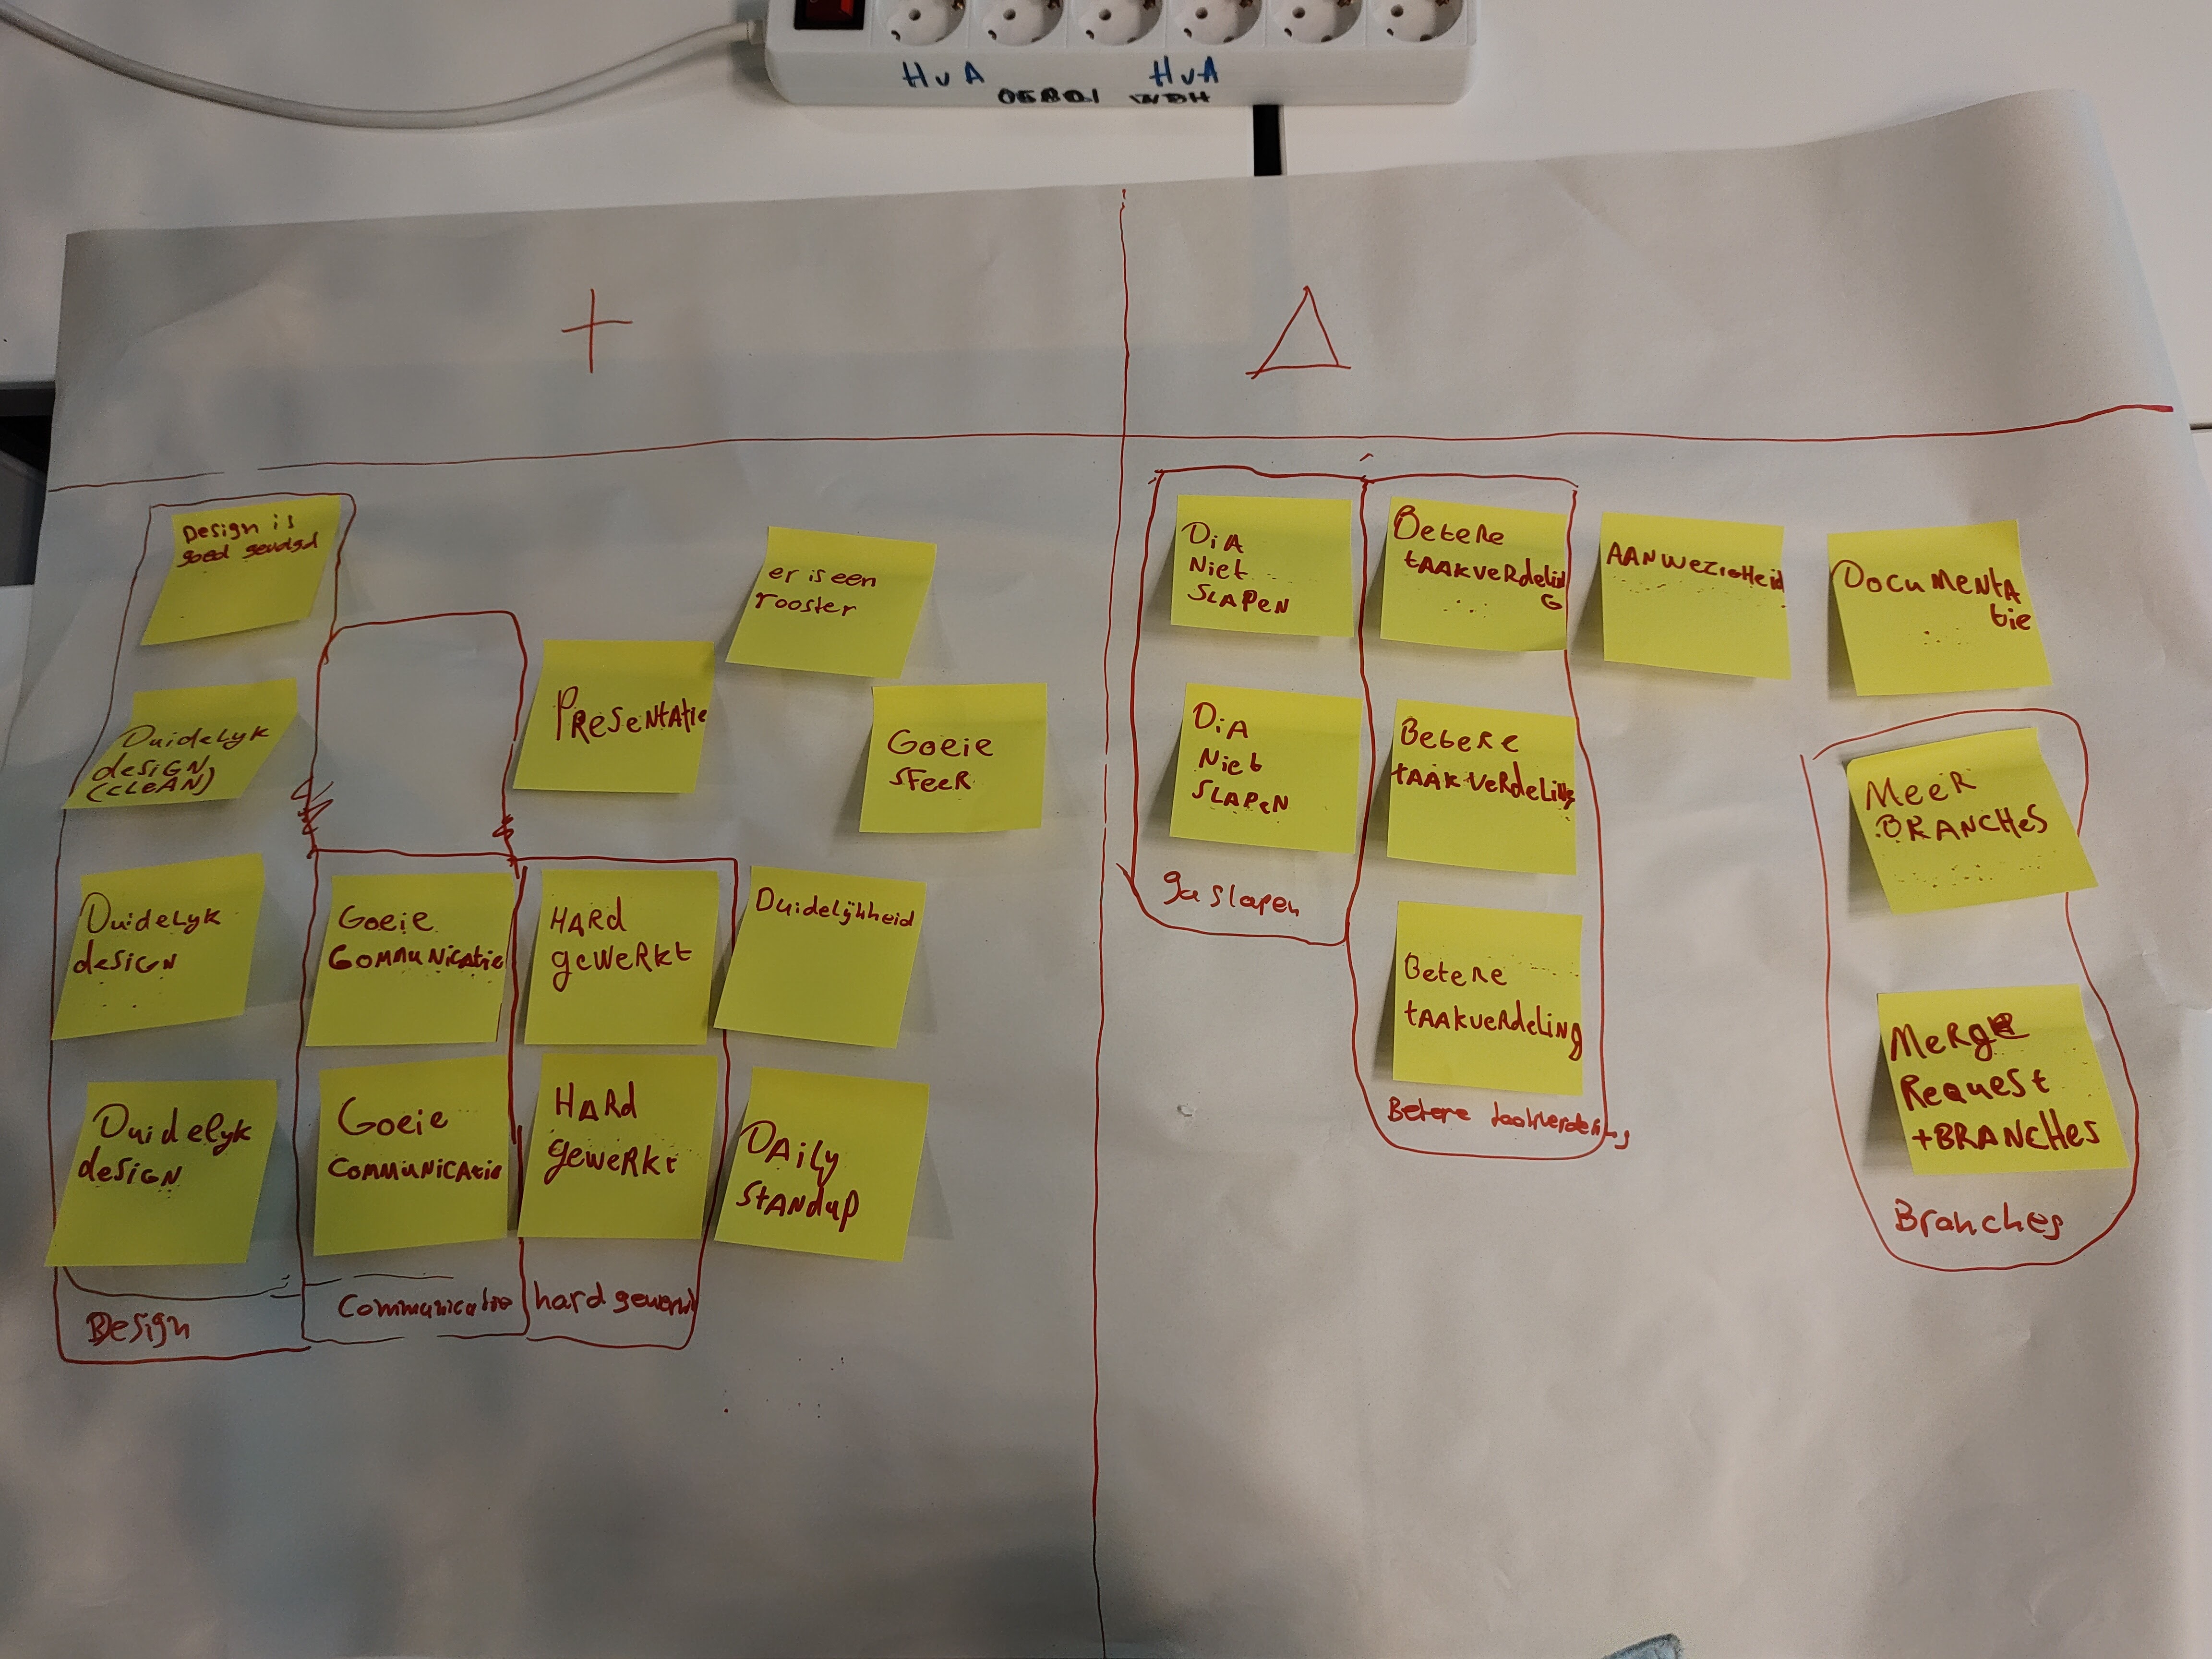 HvA HvA
06801 WBH
+
Δ
Design is
goed gevolgd
Duidelyk
design
(clean)
Duidelyk
design
Duidelyk
design
Design
Goeie
Communicatie
Goeie
Communicatie
Communicatie
Presentatie
Hard
gewerkt
Hard
gewerkt
hard gewerkt
er is een
rooster
Goeie
sfeer
Duidelijkheid
Daily
standup
Dia
Niet
slapen
Dia
Niet
slapen
ga slapen
Betere
taakverdelin
G
Betere
taakverdeling
Betere
taakverdeling
Betere taakverdeling
Aanwezigheid
Documenta
tie
Meer
Branches
Merge
Request
+Branches
Branches